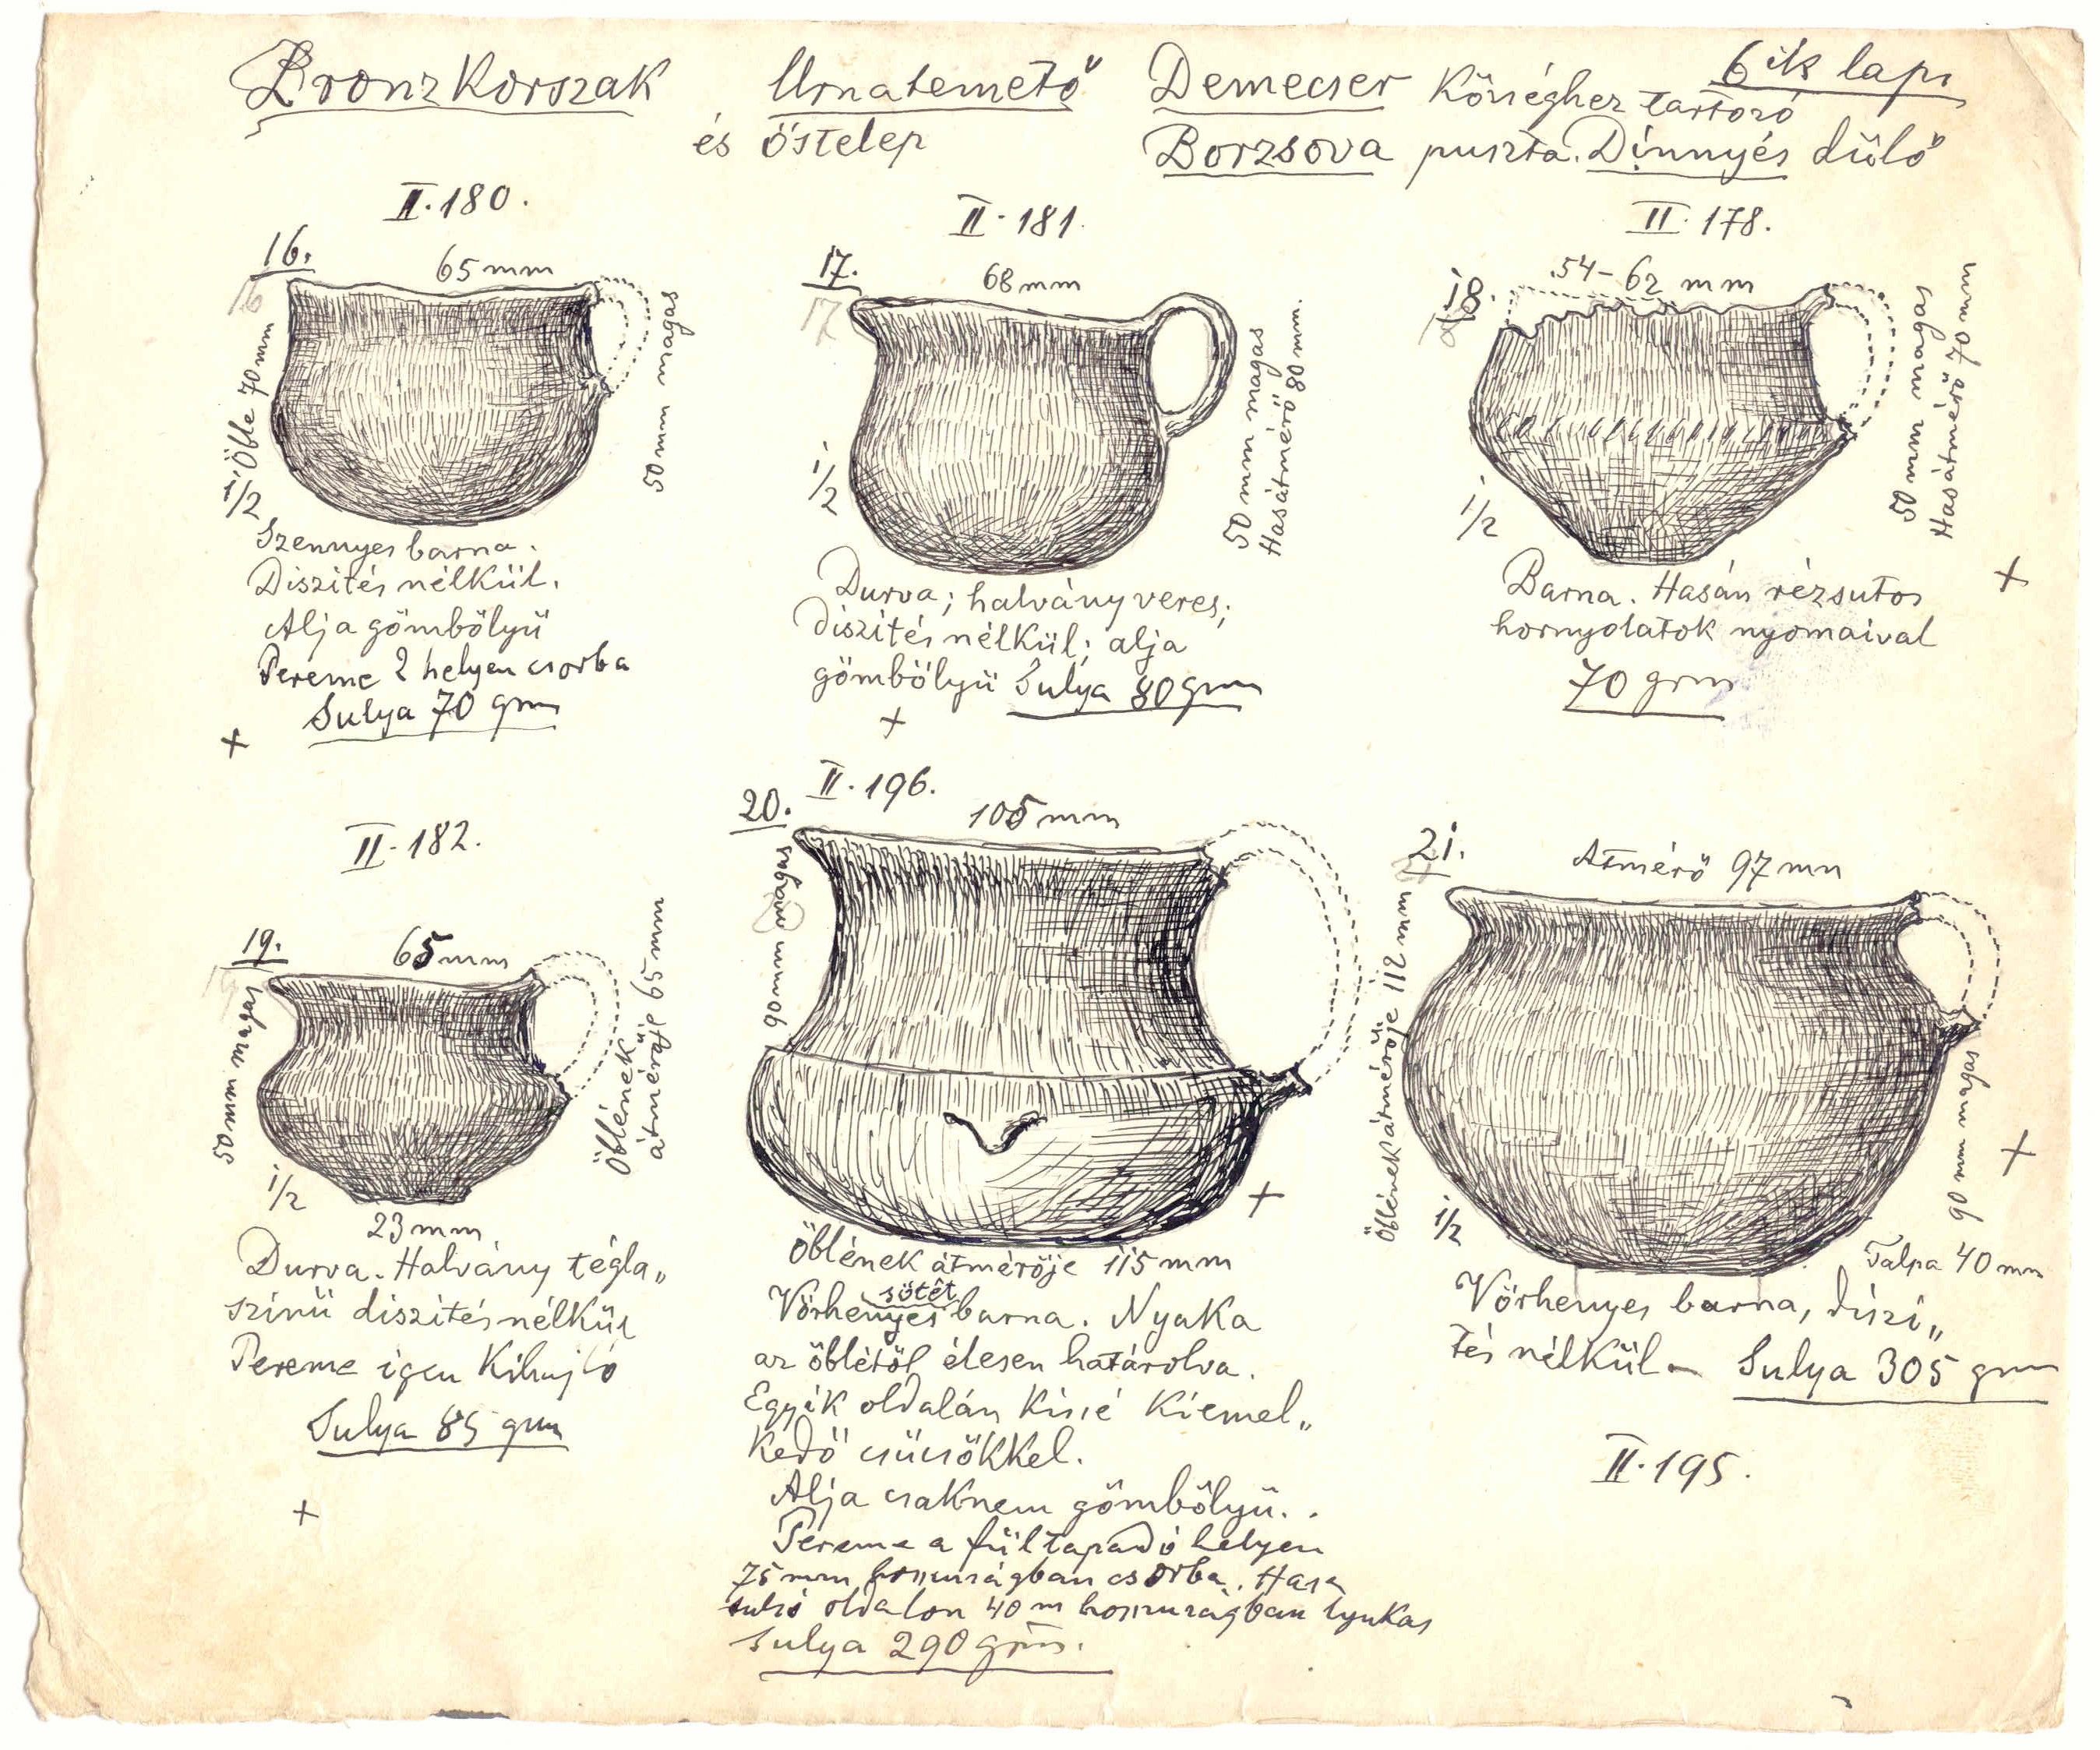 Bronzkorszak Urnatemető Demecser Községhez tartozó 6ik lap.
és őstelep Borzsova puszta. Dinnyés dűlő
II. 180.
16.
16
65 mm
Öble 70 mm
50 mm magas
1/2
Szennyes barna.
Diszités nélkül.
Alja gömbölyü
Pereme 2 helyen csorba
Sulya 70 grm
+
II. 181.
17.
17
68 mm
50 mm magas
Hasátmérő 80 mm.
1/2
Durva; halvány veres;
diszités nélkül; alja
gömbölyü Sulya 80 grm
+
II. 178.
18.
18
54-62 mm
50 mm magas
Hasátmérő 70 mm
1/2
Barna. Hasán rézsutos
hornyolatok nyomaival
70 grm
+
II. 182.
19.
19
65 mm
50 mm magas
Öblének
átmérője 65 mm
1/2
23 mm
Durva. Halvány tégla„
szinü diszités nélkül
Pereme igen Kihajló
Sulya 85 grm
+
II. 196.
20.
105 mm
90 mm magas
+
Öblének átmérője 115 mm
sötét
Vörhenyes barna. Nyaka
az öblétől élesen határolva.
Egyik oldalán Kissé Kiemel„
Kedő csücsökkel.
Alja csaknem gömbölyü.
Pereme a fül tapadó helyen
75 mm hosszuságban csorba. Hasa
oldalon 40 m hosszuságban lyukas
Sulya 290 grm.
21.
Átmérő 97 mm
Öblének átmérője 112 mm
90 mm magas
1/2
Talpa 40 mm
+
Vörhenyes barna, diszi„
tés nélkül - Sulya 305 grm
II. 195.